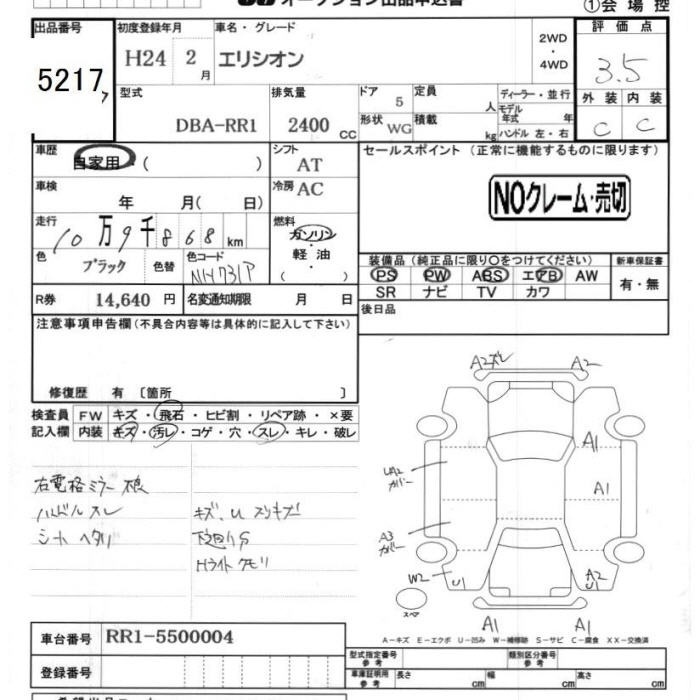 オークション出品申込書
①会場控
出品番号 初度登録年月 車名・グレード 評価点
5217 H24 2月 エリシオン 2WD・4WD 3.5
型式 排気量 ドア 5 定員 人 ディーラー・並行 外装 内装
DBA-RR1 2400cc 形状 WG 積載 kg モデル年式 年式 ハンドル 左・右 C C
車歴 自家用 ( ) シフト AT セールスポイント (正常に機能するものに限ります)
車検 年 月( 日) 冷房 AC NOクレーム・売切
走行 10万9千868km 燃料 ガソリン・軽油・( )
色 ブラック 色替 色コード NH731P
装備品 (純正品に限り○をつけてください) 新車保証書
PS PW ABS エアB AW 有・無
SR ナビ TV カワ
R券 14,640円 名変通知期限 月 日 後日品
注意事項申告欄 (不具合内容等は具体的に記入して下さい)
修復歴 有 〔箇所 〕
検査員記入欄 FW キズ・飛石・ヒビ割・リペア跡・×要
内装 キズ・汚レ・コゲ・穴・スレ・キレ・破レ
右電格ミラー不良
ハンドルスレ
シートヘタリ
キズ、U スリキズ
下廻りS
Hライトクモリ
A2ズレ A2
A1
A1
UA2 カバー
A3 カバー
W2 U1 A2 U1
スペア
A1 A1
A-キズ E-エクボ U-凹み W-補修跡 S-サビ C-腐食 XX-交換済
車台番号 RR1-5500004
登録番号
型式指定番号 参考 類別区分番号 参考
車庫証明用 参考 長さ cm 幅 cm 高さ cm